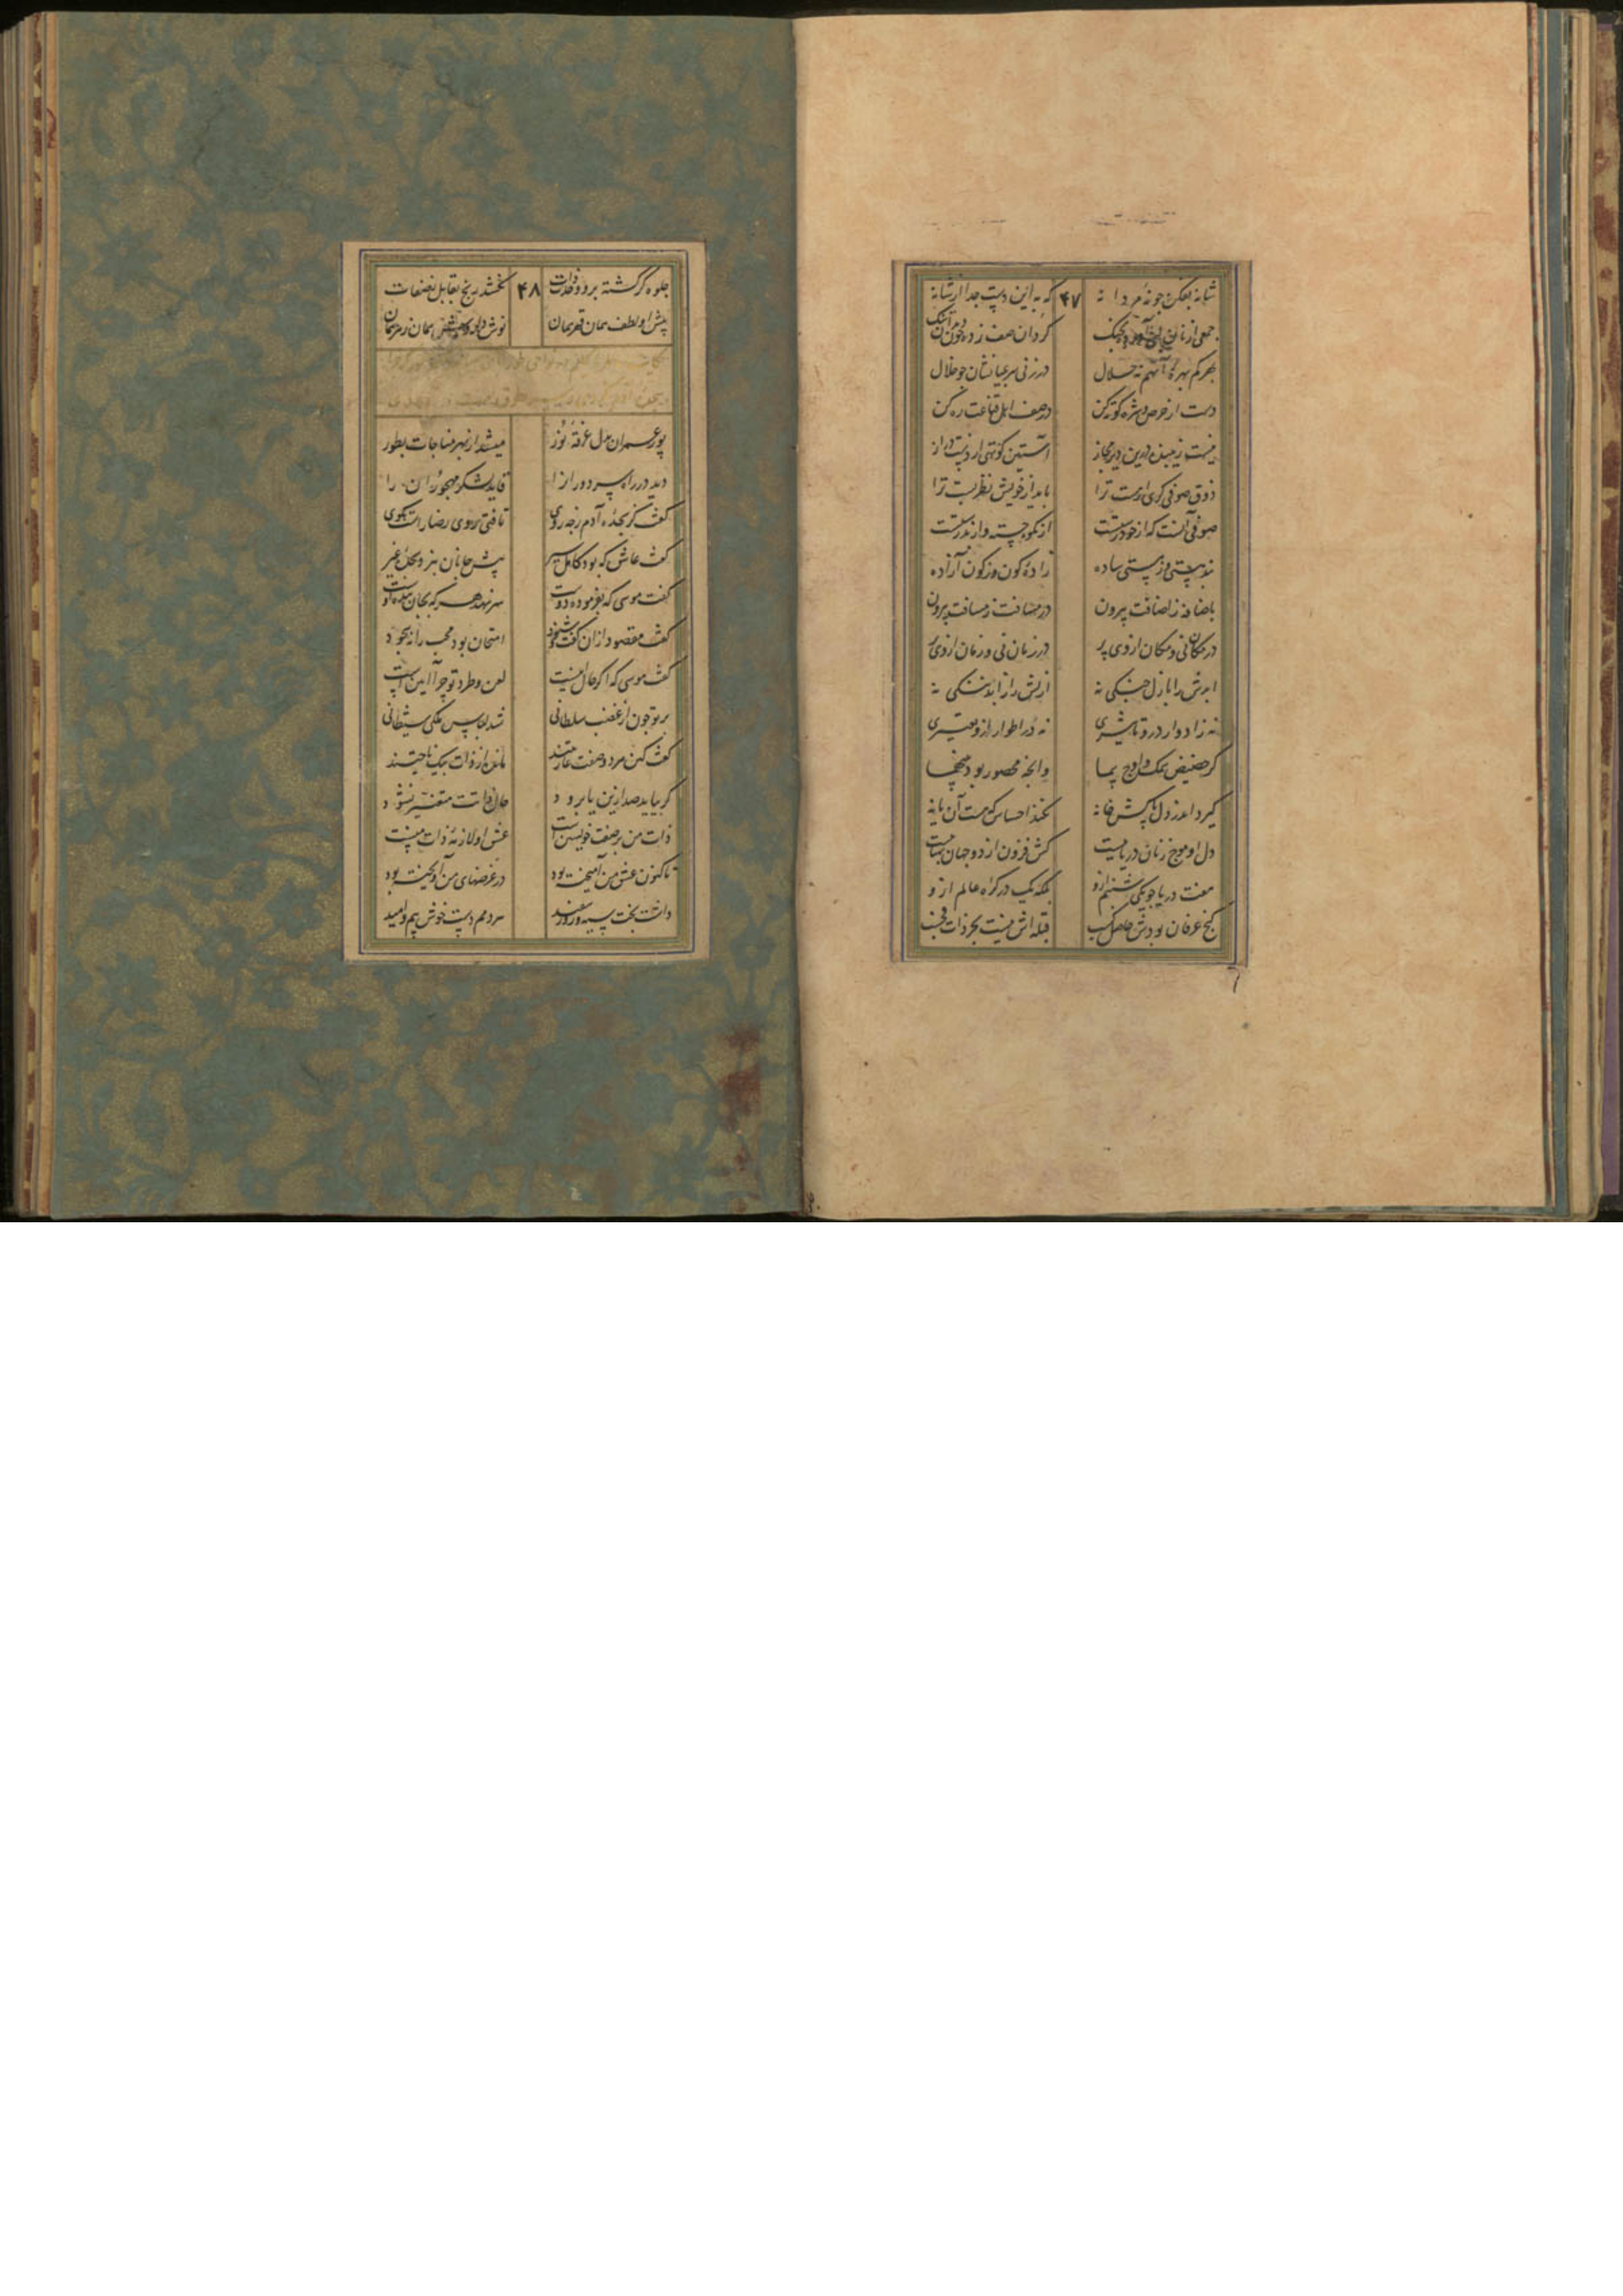 شانه بفکن چو نهٔ مردانه ۴۷ که به این دست جدا از شانه
جمعی از نان بچنگ گردان صف زده چون دندانک
بهر کم بهره آنهم نه حلال در زنی سر بمیانشان چو خلال
دست از خرص و شره کوته کن در صف اهل قناعت ره کن
نیست زیبنده درین دیر مجاز آستین کوتهی از دست دراز
ذوق صوفی گری ار هست ترا باید از خویش نظر بست ترا
صوفی آنست که از خود رستست از نکو جسته و از بد رستست
نه بهستی و ز پستی ساده زادهٔ کون و ز کون آزاده
باضافه ز اضافت بیرون در مسافت ز مسافت بیرون
در مکان نی و مکان از وی پر در زمان نی و زمان از وی پر
ابدش را بازل جنگی نه ازلش را ز ابد ننگی نه
نه ز ادوار درو تاثیری نه در اطوار ازو تغییری
گر حضیض سمک و اوج سما وانچه محصور بود بینهما
گیرد اندر دل پاکش خانه نکند احساس که هست آن یا نه
دل او موج زنان دریاییست کش فزون از دو جهان پهناییست
هفت دریا چو یکی شبنم ازو بلکه یک در گره عالم ازو
گنج عرفان بودش حاصل کسب قبله‌اش نیست بجز ذات فحسب
جلوه گر گشته برو وحدت ذات ۴۸ نکشد رنج تقابل بصفات
پیش او لطف همان قهر همان نوش داروش همان زهر همان
پور عمران بدل غرقهٔ نور میشد از بهر مناجات بطور
دید در راه سر دوران را قاید لشکر مهجوران را
گفت کز سجدهٔ آدم ز چه روی تافتی روی رضا راست بگوی
گفت عاشق که بود کامل سیر پیش جانان نبرد سجدهٔ غیر
گفت موسی که بفرمودهٔ دوست سر نهد هر که بجان بندهٔ اوست
گفت مقصود از آن گفت و شنود امتحان بود محب را نه سجود
گفت موسی که اگر حال اینست لعن و طرد تو چرا آیین است
بر تو چون از غضب سلطانی شد لباس ملکی شیطانی
گفت کین هر دو صفت عاریتند مانده از ذات بیک ناحیتند
گر بیاید صد ازین یا برود حال ذاتم متغیر نشود
ذات من بر صفت خویشتن است عشق او لازمهٔ ذات منست
تاکنون عشق من آمیخته بود در غرضهای من آویخته بود
داشت بخت سیه و روز سفید هر دمم دست خوش بیم و امید